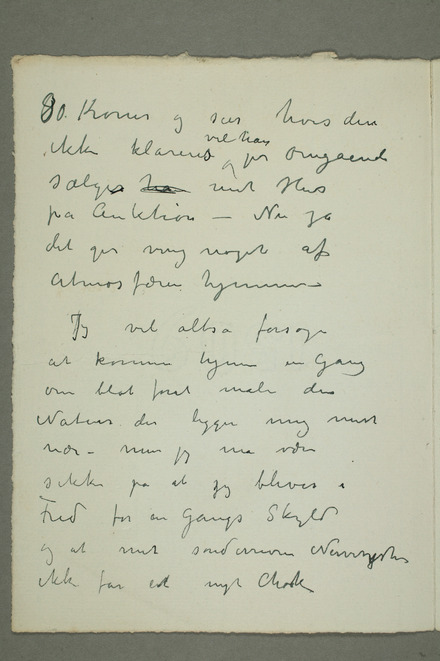 80. Kroner og sier hvis den
ikke klareres vil han og per omgående
sælge ha mit Hus
på Auktion — Nu ja
det gir mig noget af
Atmosfæren hjemme –
Jeg vil altså forsøge
at komme hjem en Gang
om blot foråt male den
Natur der ligger mig mest
nær – men jeg må være
sikker på at jeg bliver i
Fred for en Gangs Skyld
og at mit sønderrevne Nervesystem
ikke får et nyt Chok